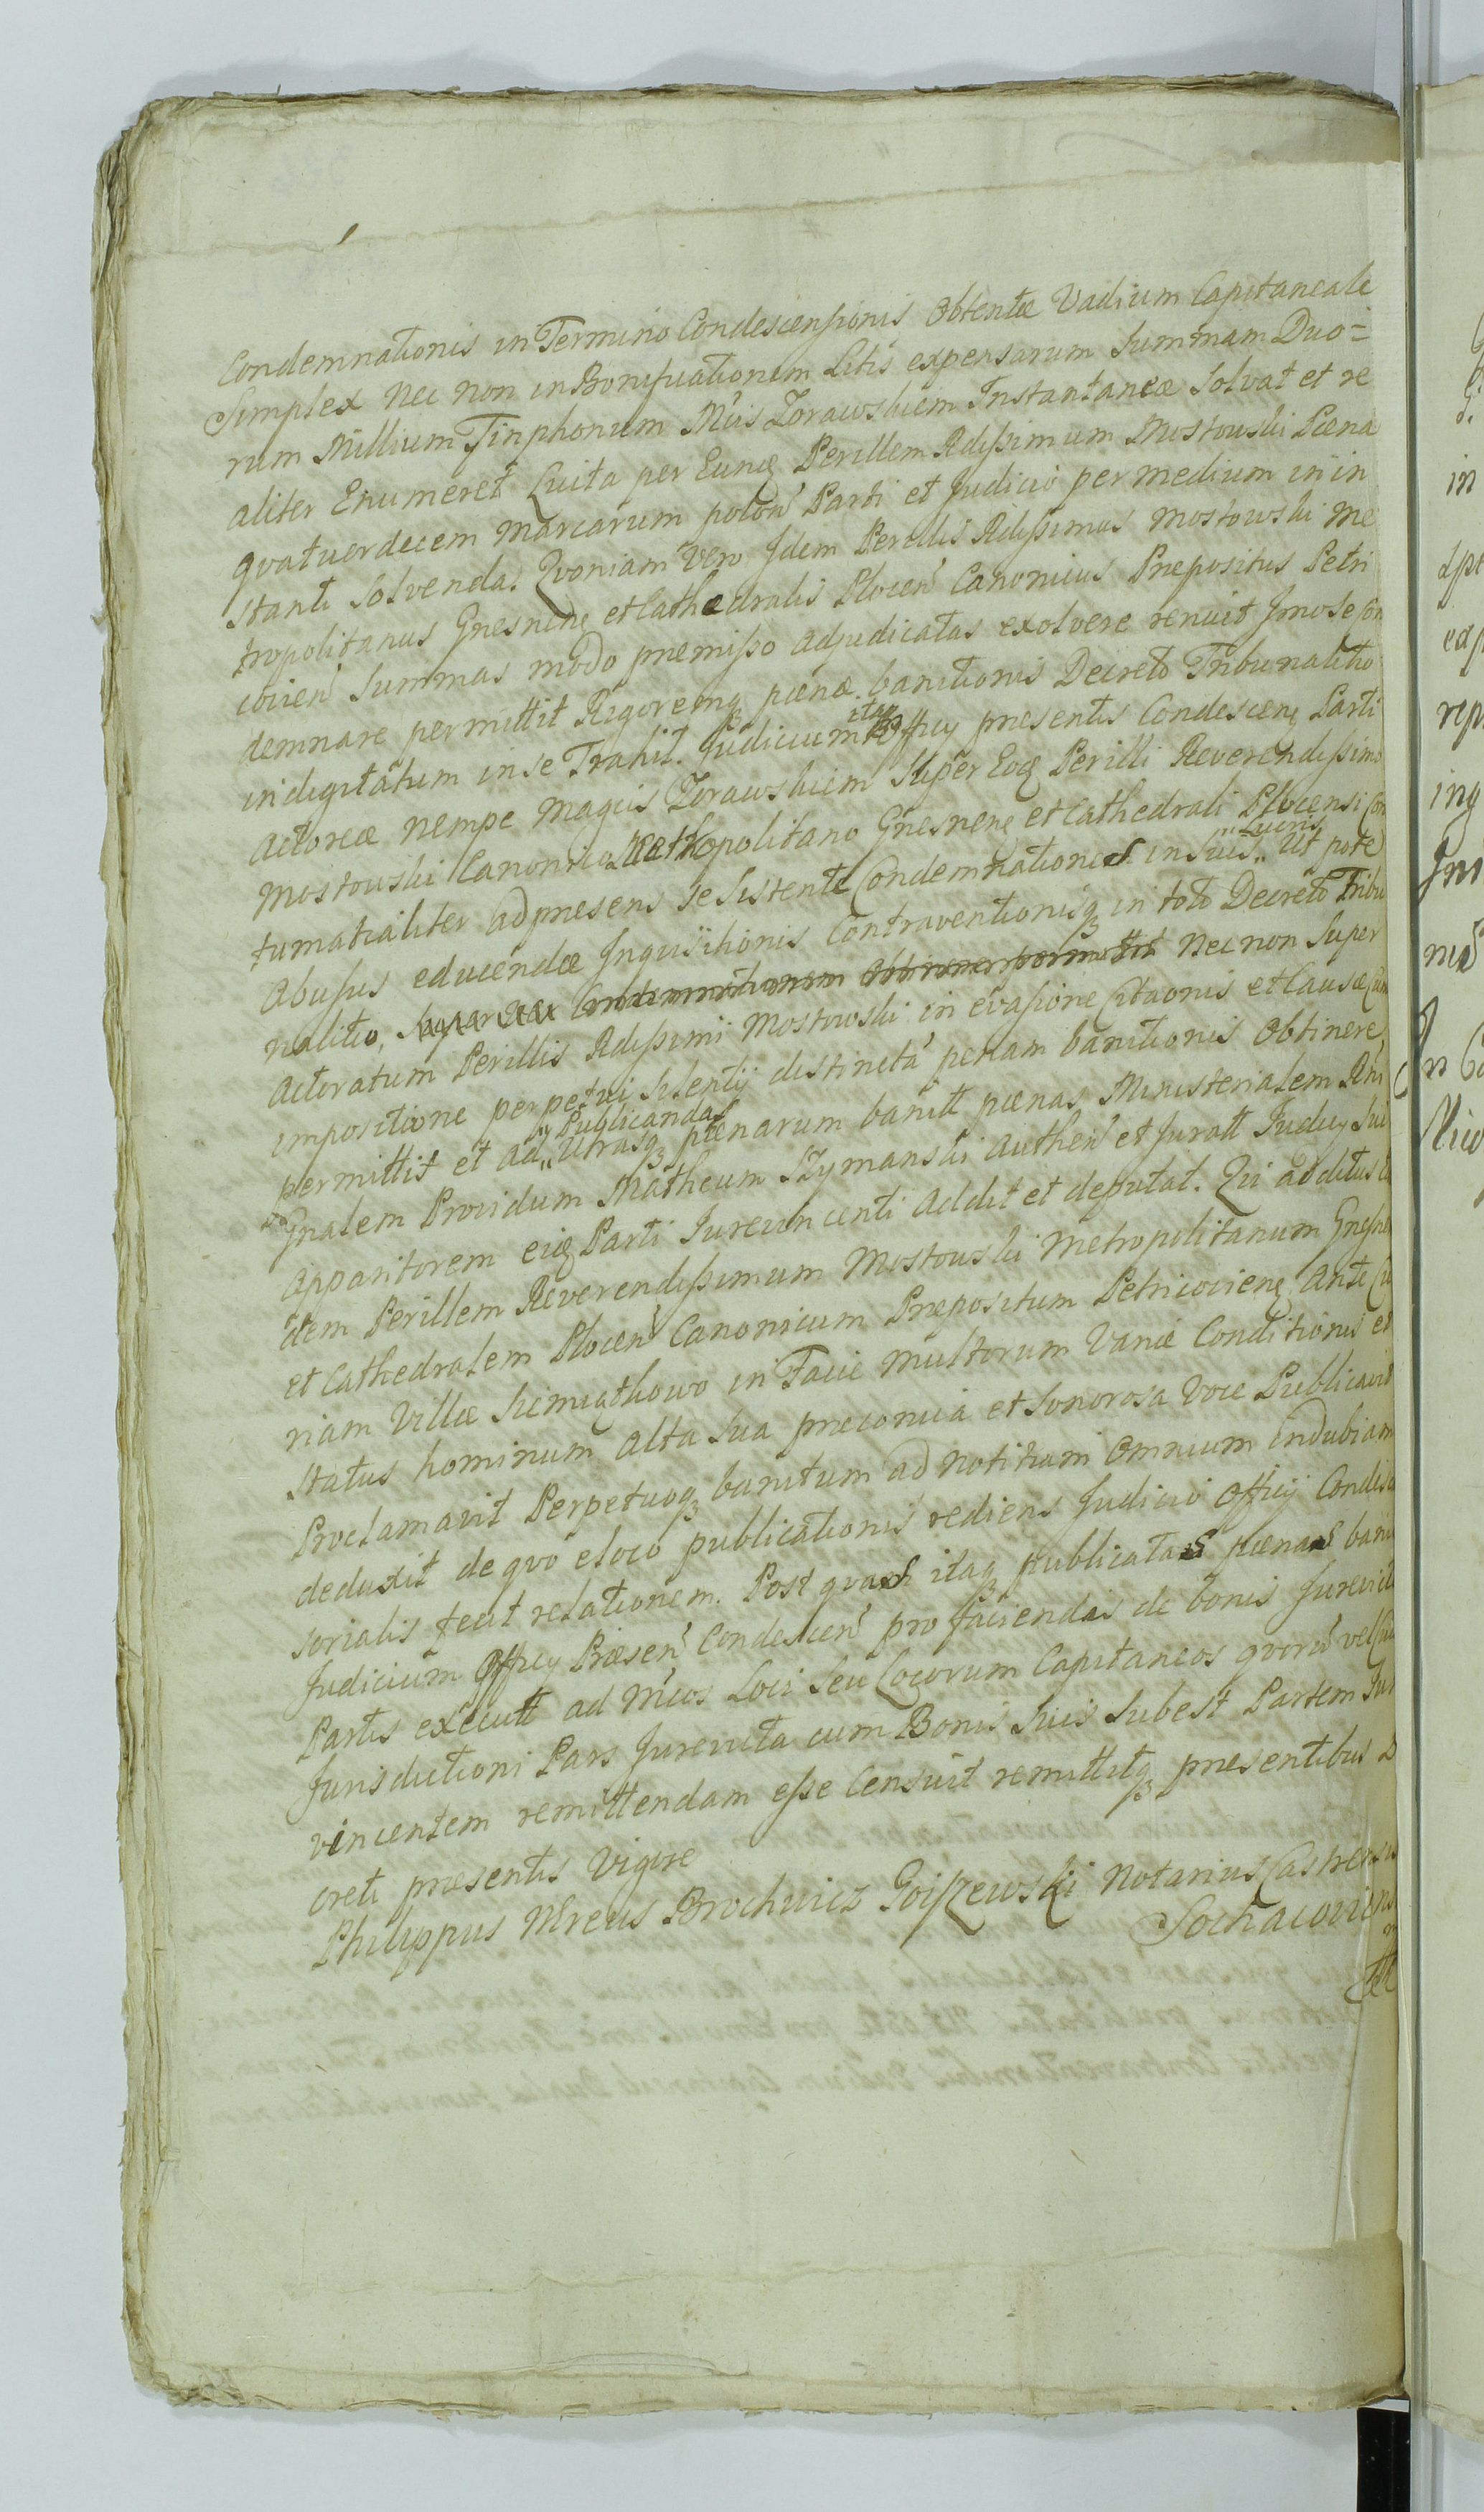 Condemnationis in Termino Condescensionis Obtentæ Vadium Capitaneale
Simplex nec non in Bonifuationem Litis expensarum Summam Duo=
rum Millium Tinphonum Mcis Zorawskiem Instantaneæ Solvat et re
aliter Enumeret Luita per Eunq Perillem Rdissimum Mostowski Pœna
qvatuordecem Marcarum polon Parti et Judicio per medium in in
stanti Solvenda. Qvoniam Vero Idem Perillis Rdissimus Mostowski Me
tropolitanus Gnesnenq et Cathedralis Plocen Canonicus Prepositus Petri
covien Summas modo premisso adjudicatas exolvere renuit Imo se Con
demnare permittit Rigoremq pœnæ banitionis Decreto Tribunalitio
indigitatum in se Trahit. Judicium itaq Officy presentis Condescenq Parti
Actoreæ nempe Magcis Zorawskiem Super Eoq Perilli Reverendissimo
Mostowski Canonico Methropolitano Gnesnenq et Cathedrali Plocensi Con
tumatialiter ad presens se Sistente Condemnationes in Suis „Lucris„ Ut pote
Abusus educendæ Inquisitionis Contraventionisq in toto Decreto Tribu
nalitio, Condemnationem Obtinere permittit Nec non Super
Actoratum Perillis Rdissimi Mostowski in evasione Citaonis et Causæ Cum
impositione perpetui Silentij distincta penam banitionis Obtinere
permittit et ad „Publicandas„ Utrasq pœnarum banitt pœnas Ministerialem Rni
Gnalem Providum Matheum Szymanski Authen et Juratt Judicy Sui
Apparitorem eiq Parti Jurevincenti Addit et deputat. Qui additus
dem Perillem Reverendissimum Mostowski Metropolitanum Gnesnen
et Cathedralem Plocen Canonicum Prepositum Petricovienq Ante Cu
riam Villæ Siemiąthkowo in Facie Multorum Variæ Conditionis et
Status hominum alta Sua preconica et Sonorosa Voce Publicavit
Proclamavit Perpetuoq banitum ad Notitiam Omnium indubiam
deduxit de qvo e loco publicationis rediens Judicio Officij Condesc
sorialis fecit relationem. Post qvas itaq publicatas pœnas bani
Judicium Officy Præsen Condescen pro faciendas de bonis Jurevict
Partis executt ad Mcos Loci Seu Locorum Capitaneos qvoru vel
Jurisdictioni Pars Jurevicta cum Bonis Suis Subest Partem Jure
vincentem remittendam esse Censuit remittitq presentibus D
creti presentis Vigore
Philippus Nereus Brochwicz Goiszewski Notarius Castrensis
Sochacovien